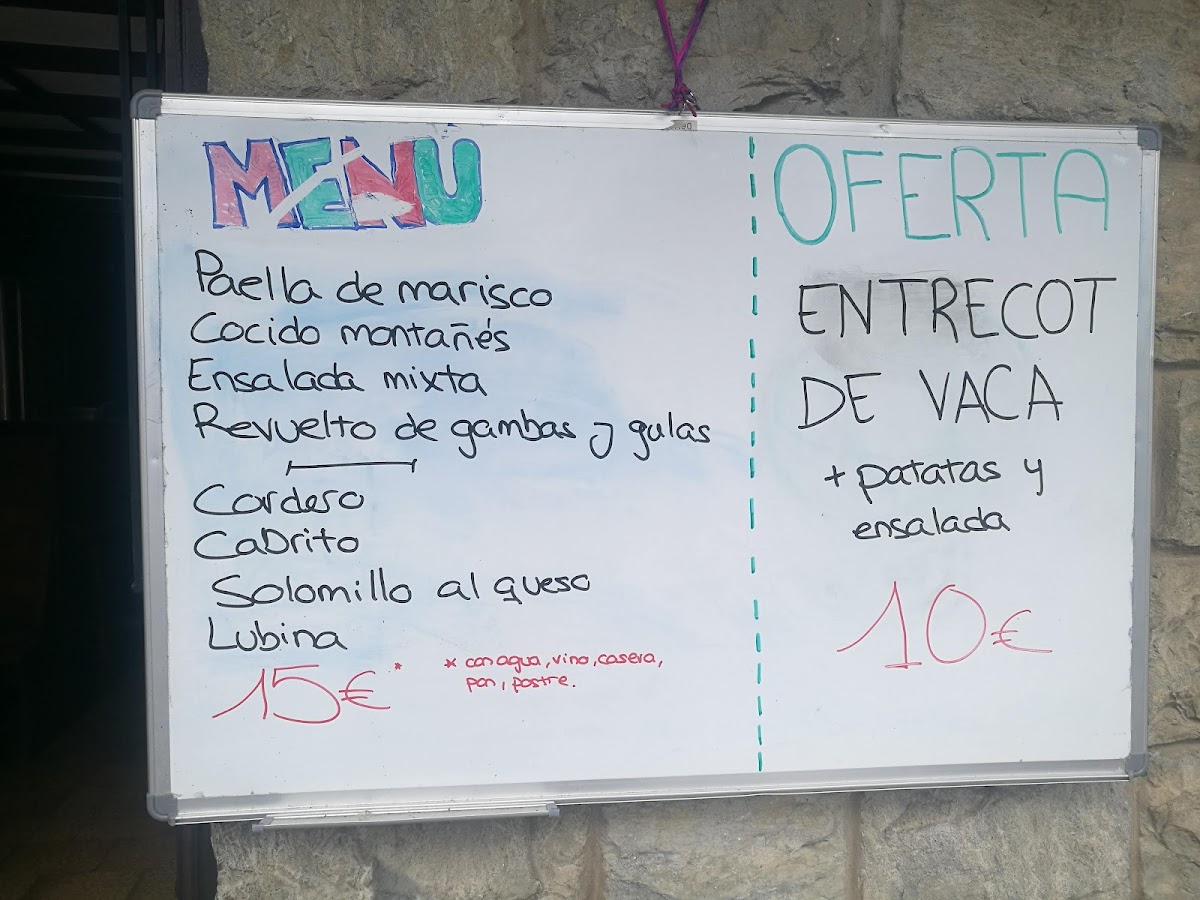 MENÚ
Paella de marisco
Cocido montañés
Ensalada mixta
Revuelto de gambas y gulas
Cordero
Cabrito
Solomillo al queso
Lubina
15€*
* con agua, vino, casera,
pan, postre.
OFERTA
ENTRECOT
DE VACA
+ patatas y
ensalada
10€